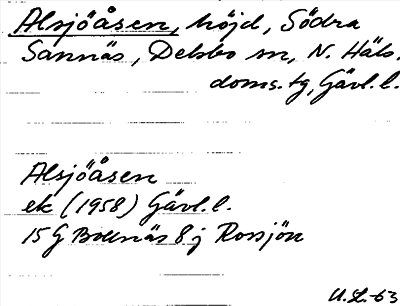 Alsjöåsen, höjd, Södra
Sannäs, Delsbo sn, N. Häls.
doms. tg, Gävl. l.
Alsjöåsen
ek (1958) Gävl. l.
15 G Bollnäs 8 j Rossjön
U.L.-63